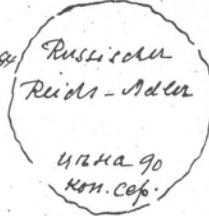 Russischer
Reichs-Adler
цѣна 90
коп. сер.